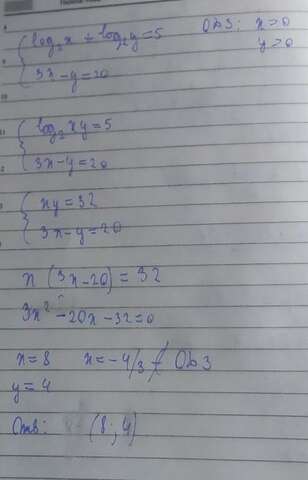 { log₂x + log₂y = 5   ОДЗ: x>0
y>0
3x-y=20
{ log₂xy=5
3x-y=20
{ xy=32
3x-y=20
x (3x-20) = 32
3x² -20x -32=0
x=8   x=-4/3 ≠ ОДЗ
y=4
Отв: (8; 4)